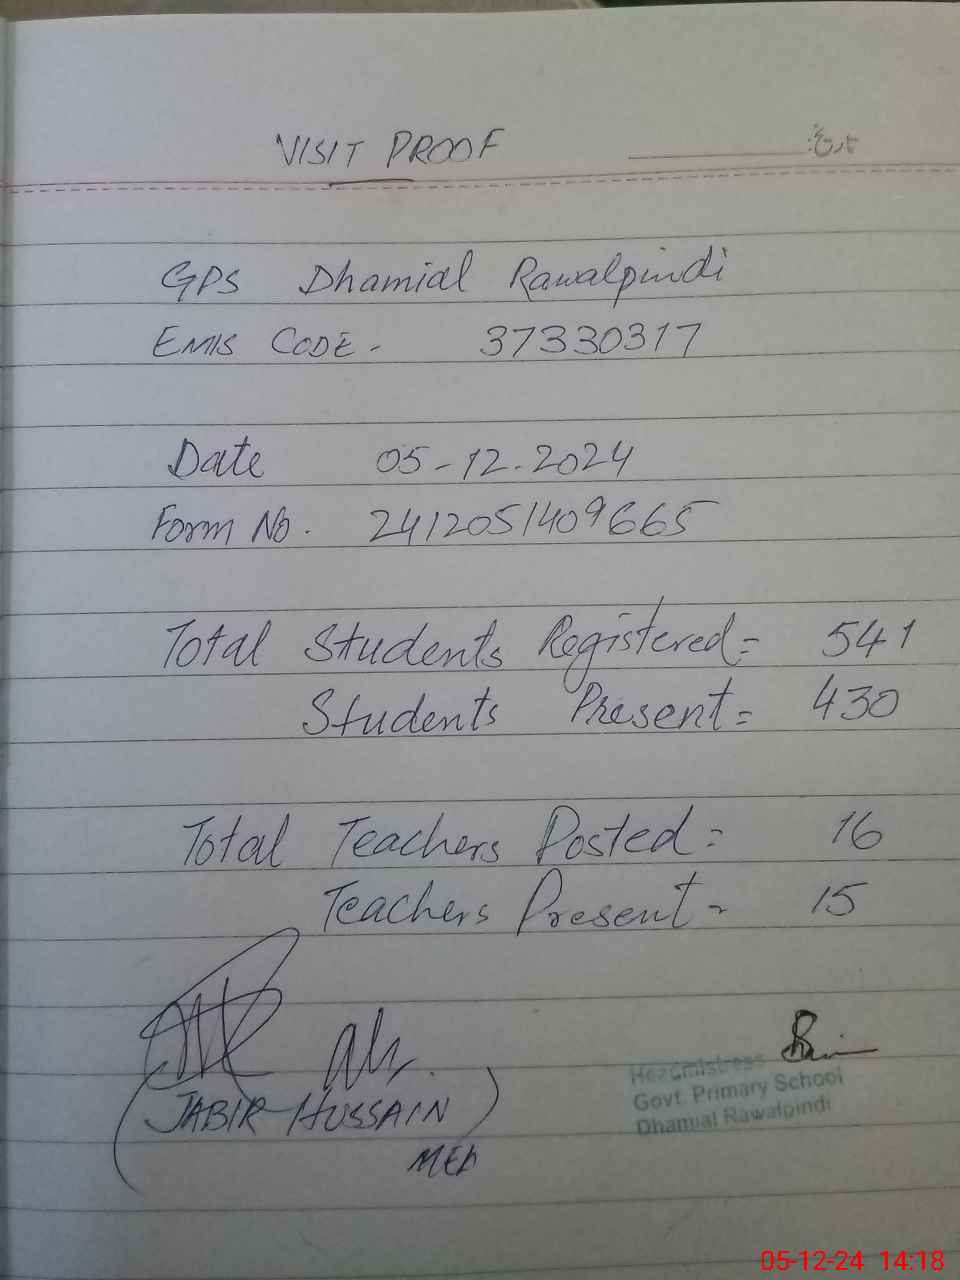 VISIT PROOF
تاریخ:
GPS Dhamial Rawalpindi
EMIS CODE - 37330317
Date 05-12.2024
Form No. 2412051409665
Total Students Registered = 541
Students Present = 430
Total Teachers Posted = 16
Teachers Present = 15
(JABIR HUSSAIN)
MEA
Headmistress
Govt. Primary School
Dhamial Rawalpindi
05-12-24 14:18